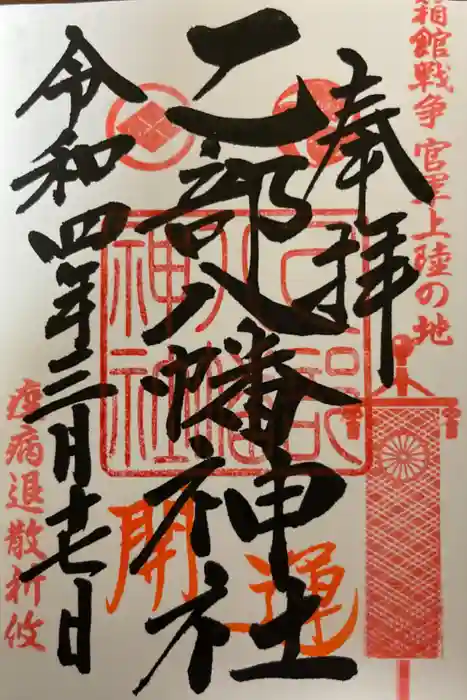 箱館戦争 官軍上陸の地
奉拝
乙部八幡神社
乙部
八幡
神社
開運
令和四年三月十七日
疫病退散祈攸